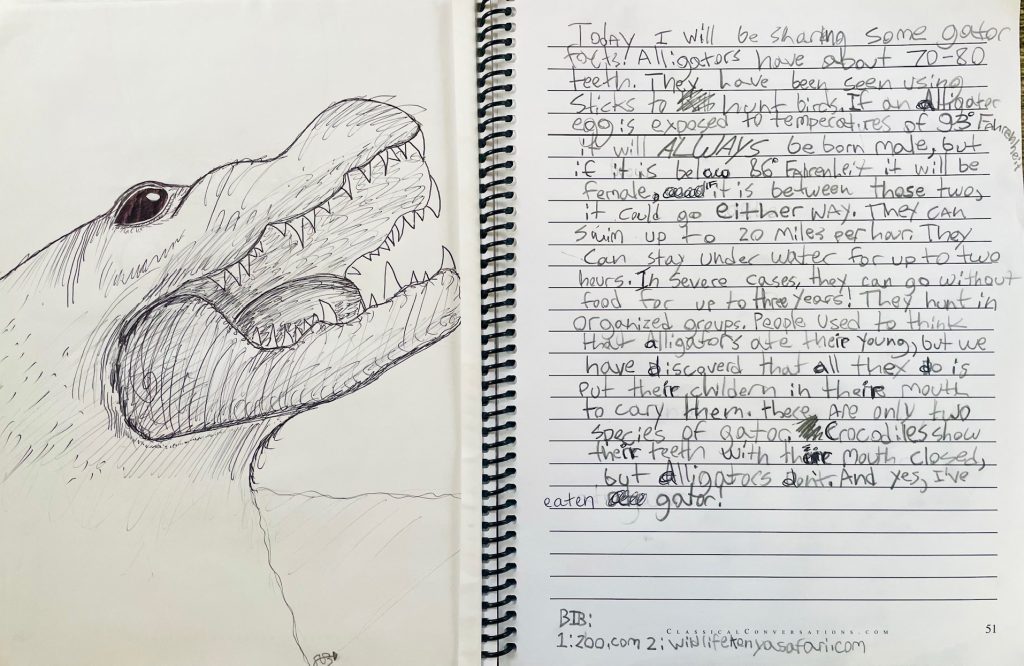 Today I will be sharing some gator
facts! Alligators have about 70-80
teeth. They have been seen using
sticks to hunt birds. If an alligator
egg is exposed to tempercatires of 93° Fahrenheit
it will ALWAYS be born male, but
if it is below 86° Fahrenheit it will be
female, it is between those two,
it could go either way. They can
swim up to 20 miles per hour. They
can stay under water for up to two
hours. In severe cases, they can go without
food for up to three years! They hunt in
organized groups. People used to think
that alligators ate their young, but we
have discoverd that all they do is
put their childern in their mouth
to cary them. there are only two
species of gator. Crocodiles show
their teeth with their mouth closed,
but alligators don't. And yes, I've
eaten gator!
BIB:
ClassicalConversations.com
51
1: zoo.com 2: wildlifekenyasafari.com